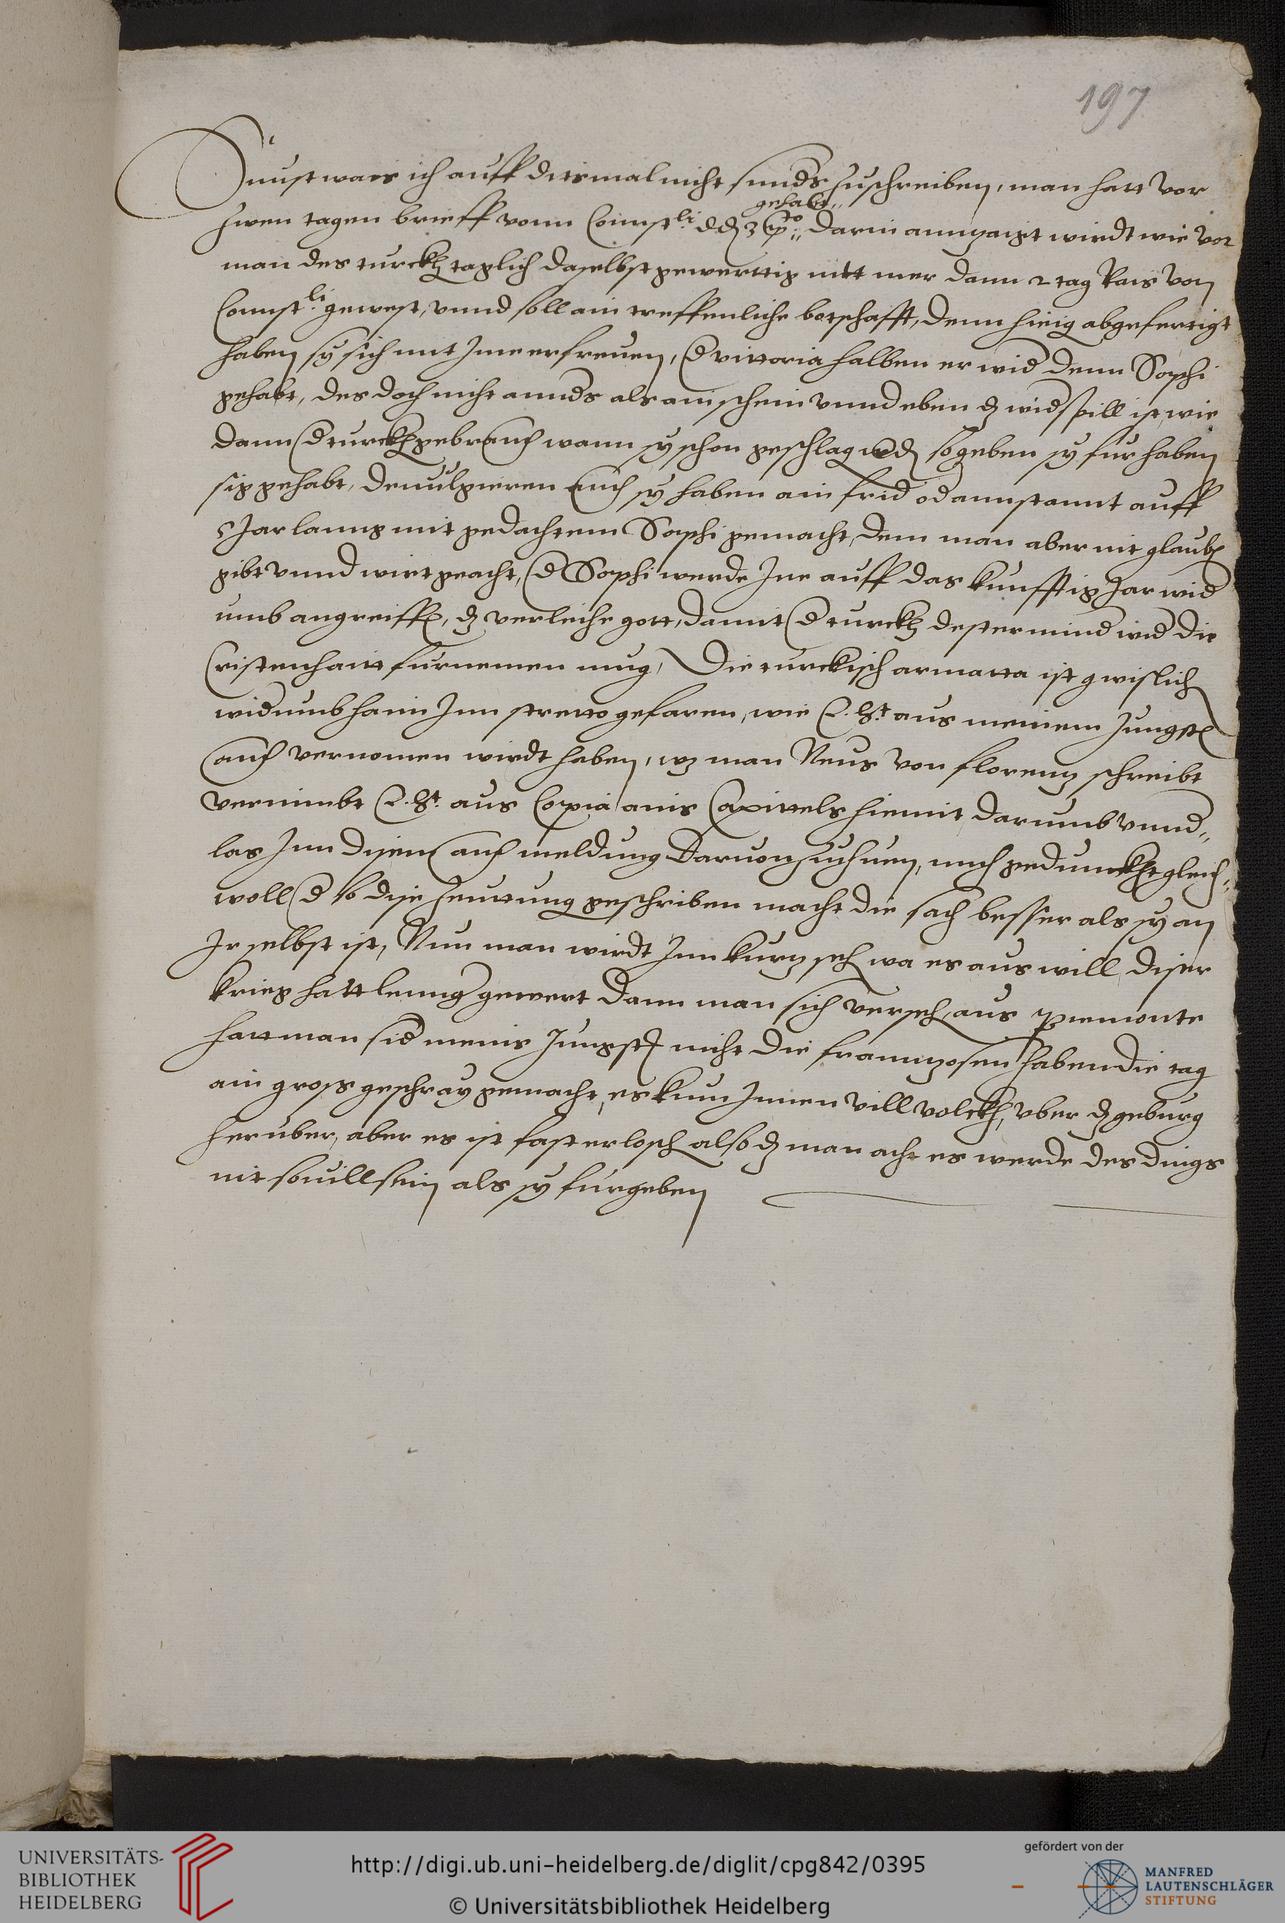 197
Sunst wais ich auff ditsmal nicht sunders zuschreiben, man hatt vor
gehabt
zwen tagen brieff vonn Connst.li dd 3 darin anngezaigt wirdt wie vor
man des turckhen taglich daselbst gewerttig nitt mer dann 2 tag Rais von
Connst.li gewest, vnnd soll ain treffenliche botschafft, denn hieig abgefertigt
haben sy sich mit Jme erfreuen, der vittoria halben er wider denn Sophi
gehabt, des doch nicht annders als ain schein vnnd eben dz widerspill ist, wie
dann der turckhen gebrauch wann sy schon geschlagen werden so geben sy fur haben
sig gehabt, deuulgieren auch sy haben ain frid oder annstannt auff
5 Jar lanng mit gedachtem Sophi gemacht, dem man aber nit glauben
gibt vnnd wirt geacht, der Sophi werde Jne auff das kunfftig Jar wider
umb angreiffen, dz verleihe gott, damit der turckh dester minder wider die
Cristenhaitt furnemen mug, Die turckisch armatta ist gwislich
widerumb haim Jnn stretto gefaren, wie E. Gt. aus meinem Jungsten
auch vernomen wirdt haben, wz man Neus von florentz schreibt
vernimbt E. Gt. aus Copia ains Capittels hiemit darumb vnnder
las Jnn disem auch meldung daruon zuthuen, mich gedunckht gleich
woll der so dise Zeuttung geschriben macht die sach besser als sy an
Jr selbst ist, Nun man wirdt Jnn kurtz sehen wa es aus will, diser
krieg hatt lennger gewert dann man sich versehen, aus piemonte
hatt man sider meins Jungsten nicht die frannzosen haben die tag
ain gross geschray gemacht, es kum Jnnen vill volckh, vber dz geburg
heruber, aber es ist fast erloschen also dz man acht es werde des dings
nit souill sein als sy furgeben
UNIVERSITÄTS-
BIBLIOTHEK
HEIDELBERG
http://digi.ub.uni-heidelberg.de/diglit/cpg842/0395
© Universitätsbibliothek Heidelberg
gefördert von der
MANFRED
LAUTENSCHLÄGER
STIFTUNG